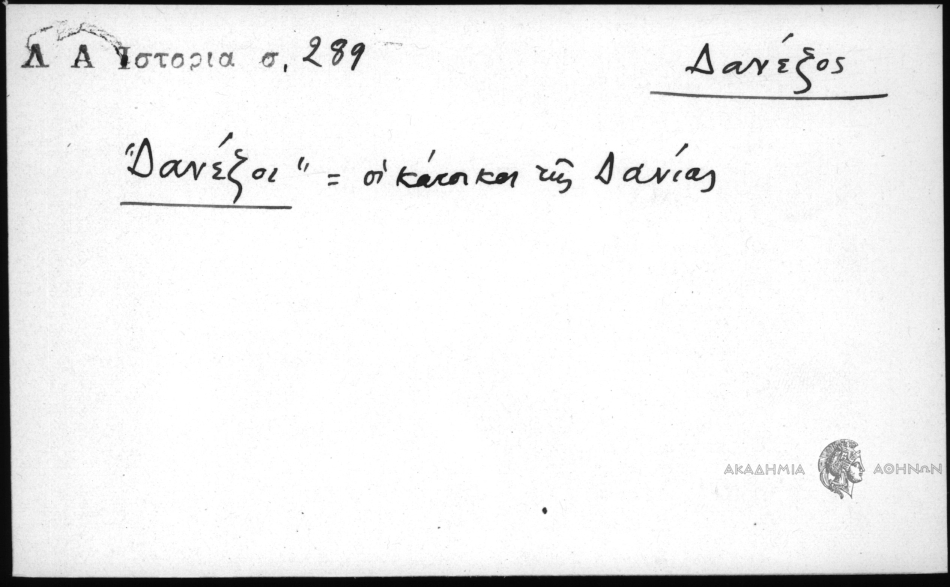 Λ Α Ἱστορια σ. 289
Δανέζος
"Δανέζοι" = οἱ κάτοικοι τῆς Δανίας
ΑΚΑΔΗΜΙΑ ΑΘΗΝΩΝ